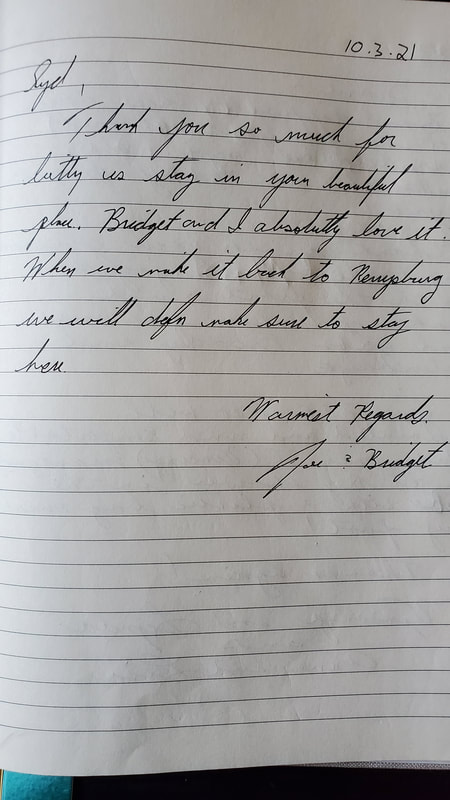 10.3.21
Syd,
Thank you so much for
letting us stay in your beautiful
place. Bridget and I absolutely love it.
When we make it back to
we will make sure to stay
here.
Warmest Regards.
Joe & Bridget